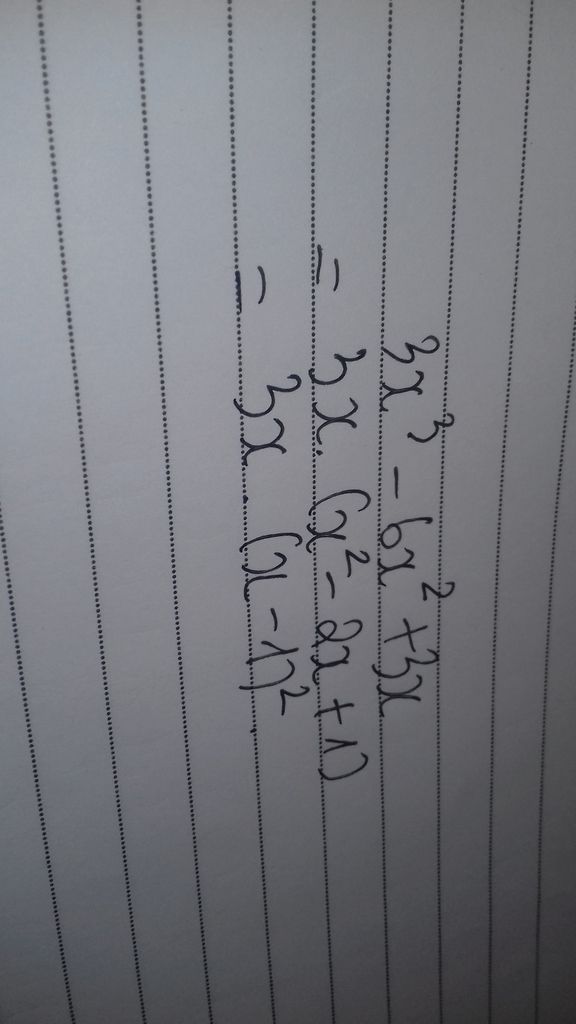 3x³ - 6x² + 3x
= 3x. (x² - 2x + 1)
= 3x. (x - 1)².